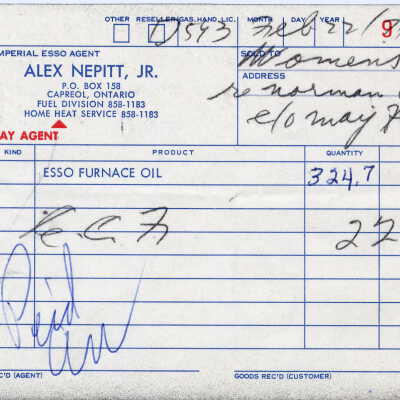 OTHER RESELLER GAS. HAND. LIC. MONTH DAY YEAR
D 5943 Feb 22/8
IMPERIAL ESSO AGENT
SOLD TO
Womens
ALEX NEPITT, JR.
ADDRESS
P.O. BOX 158
CAPREOL, ONTARIO
re norman
FUEL DIVISION 858-1183
HOME HEAT SERVICE 858-1183
c/o may
AY AGENT
KIND PRODUCT QUANTITY
ESSO FURNACE OIL 324.7
22
Paid
C'D (AGENT) GOODS REC'D (CUSTOMER)